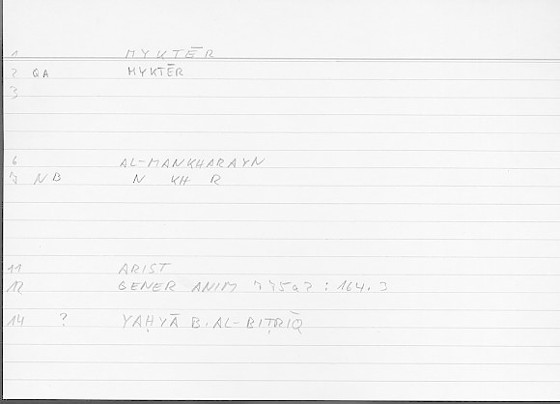 1 MYKTĒR
2 QA MYKTĒR
3
6 AL-MANKHARAYN
7 NB N KH R
11 ARIST
12 GENER ANIM 775a7 : 164.3
14 ? YAḤYĀ B. AL-BIṬRĪQ